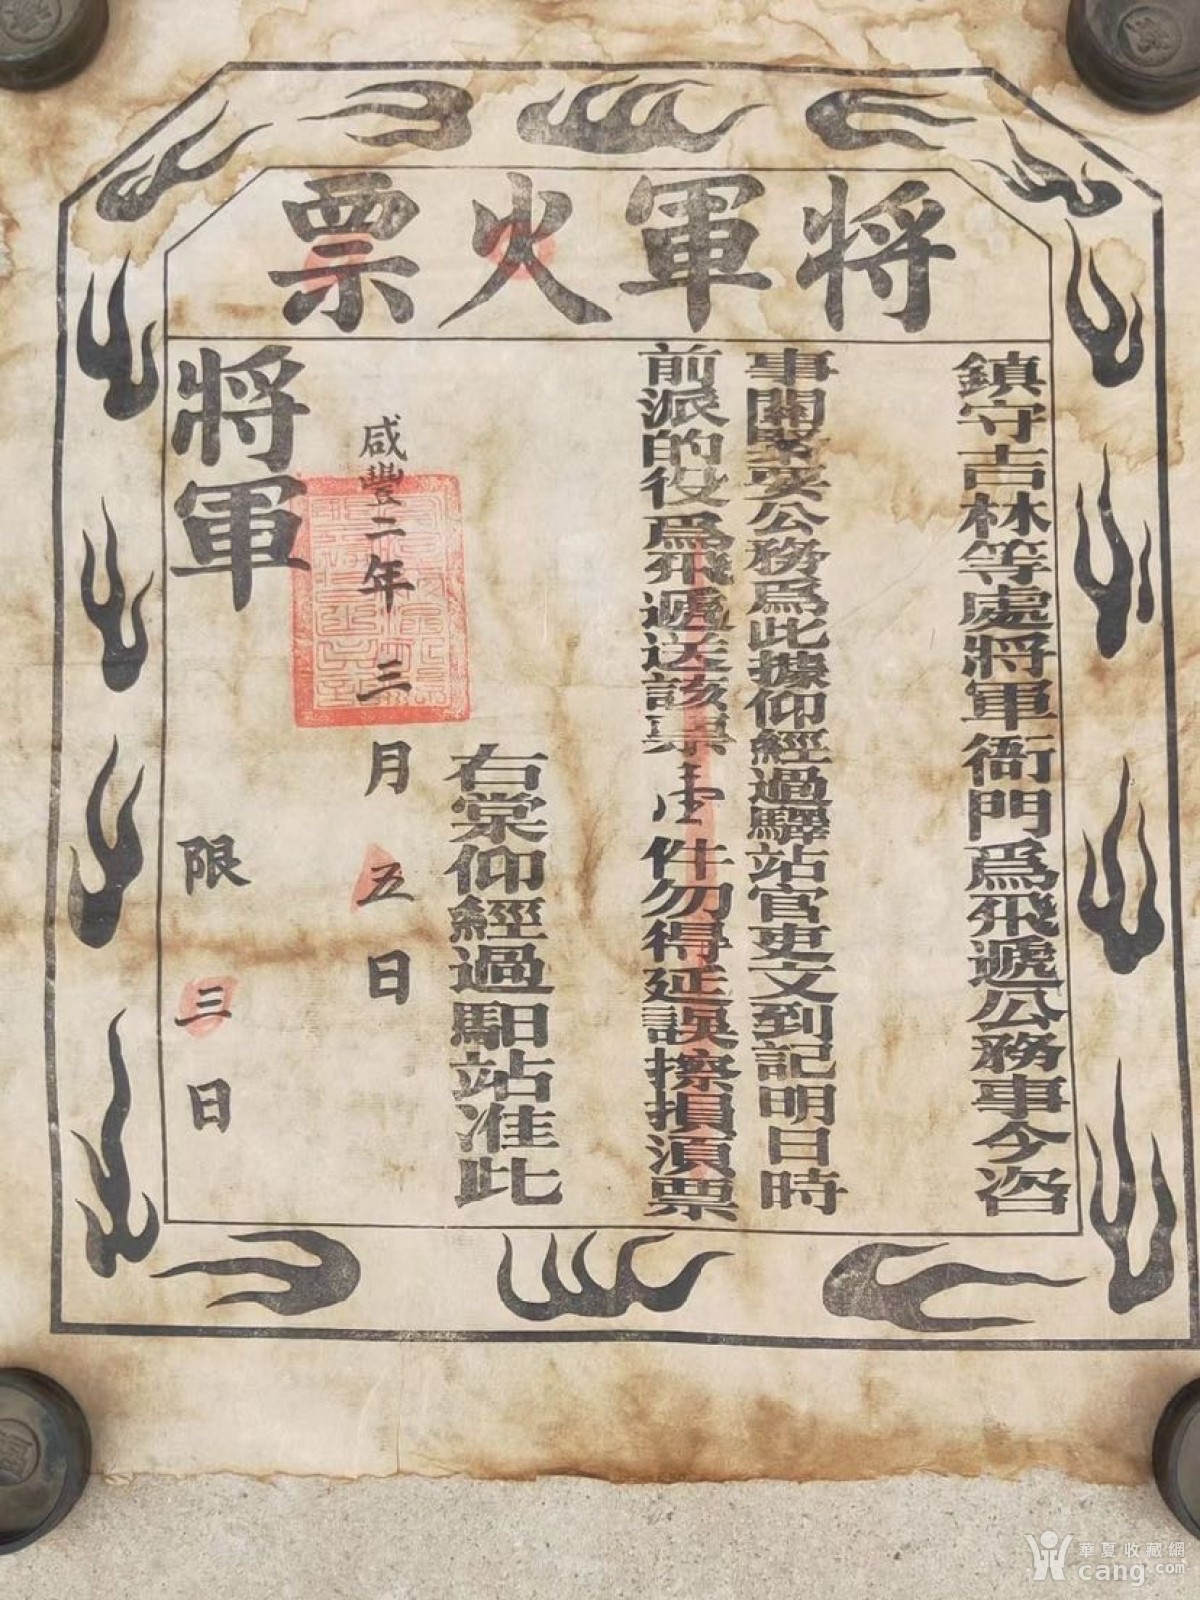 將軍火票
鎮守吉林等處將軍衙門為飛遞公務事今咨
事關緊要公務為此據仰經過驛站官吏文到記明日時
前派的役為飛遞送該票壹件勿得延誤擦損湏票
右棠仰經過馹站准此
咸豐二年三月五日
將軍
限三日
華夏收藏網
cang.com